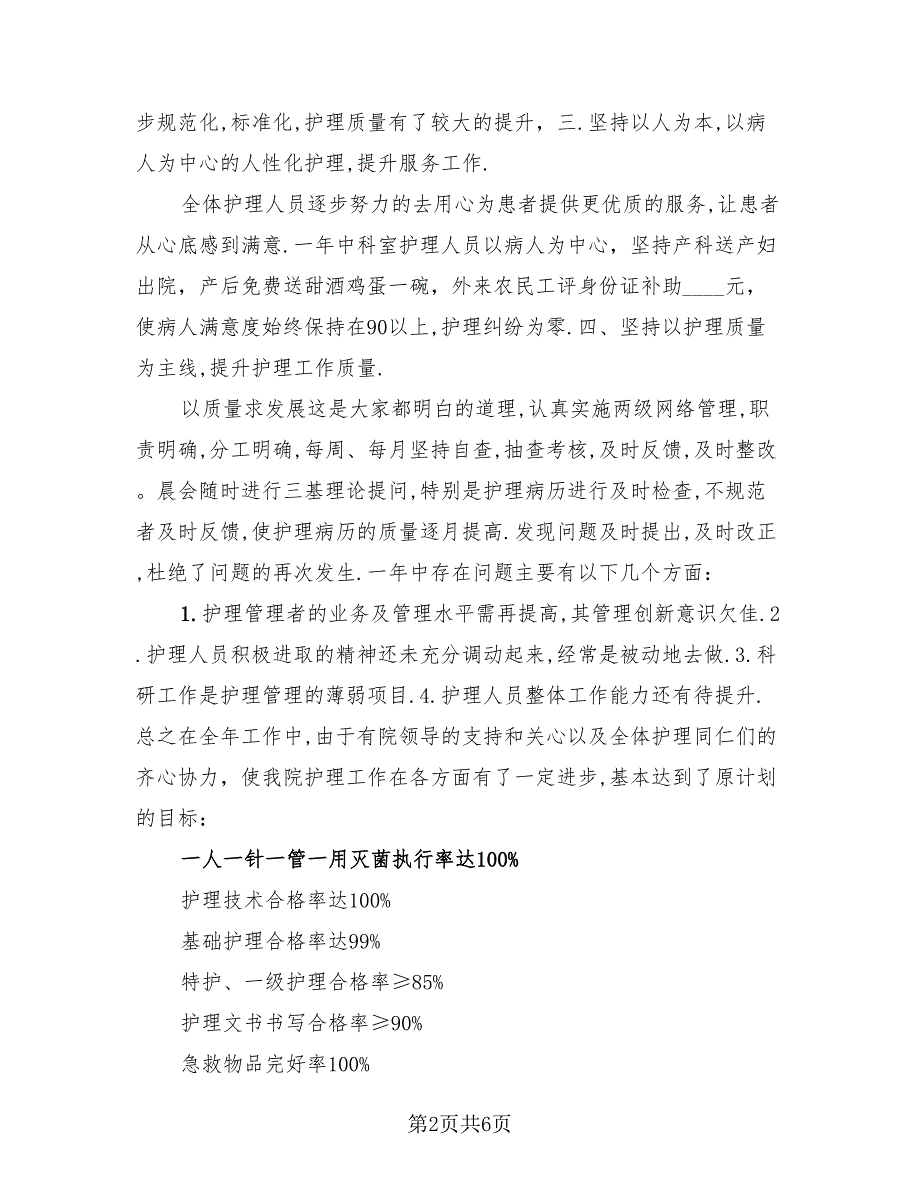 步规范化,标准化,护理质量有了较大的提升，三.坚持以人为本,以病
人为中心的人性化护理,提升服务工作.
全体护理人员逐步努力的去用心为患者提供更优质的服务,让患者
从心底感到满意.一年中科室护理人员以病人为中心，坚持产科送产妇
出院，产后免费送甜酒鸡蛋一碗，外来农民工评身份证补助____元，
使病人满意度始终保持在90以上,护理纠纷为零.四、坚持以护理质量
为主线,提升护理工作质量.
以质量求发展这是大家都明白的道理,认真实施两级网络管理,职
责明确,分工明确,每周、每月坚持自查,抽查考核,及时反馈,及时整改
。晨会随时进行三基理论提问,特别是护理病历进行及时检查,不规范
者及时反馈,使护理病历的质量逐月提高.发现问题及时提出,及时改正
,杜绝了问题的再次发生.一年中存在问题主要有以下几个方面：
1.护理管理者的业务及管理水平需再提高,其管理创新意识欠佳.2
.护理人员积极进取的精神还未充分调动起来,经常是被动地去做.3.科
研工作是护理管理的薄弱项目.4.护理人员整体工作能力还有待提升.
总之在全年工作中,由于有院领导的支持和关心以及全体护理同仁们的
齐心协力，使我院护理工作在各方面有了一定进步,基本达到了原计划
的目标：
一人一针一管一用灭菌执行率达100%
护理技术合格率达100%
基础护理合格率达99%
特护、一级护理合格率≥85%
护理文书书写合格率≥90%
急救物品完好率100%
第2页共6页